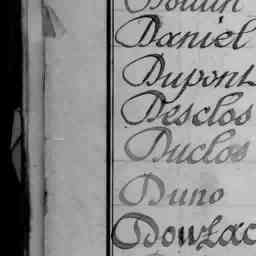 Daniel
Dupont
Desclos
Duclos
Duno